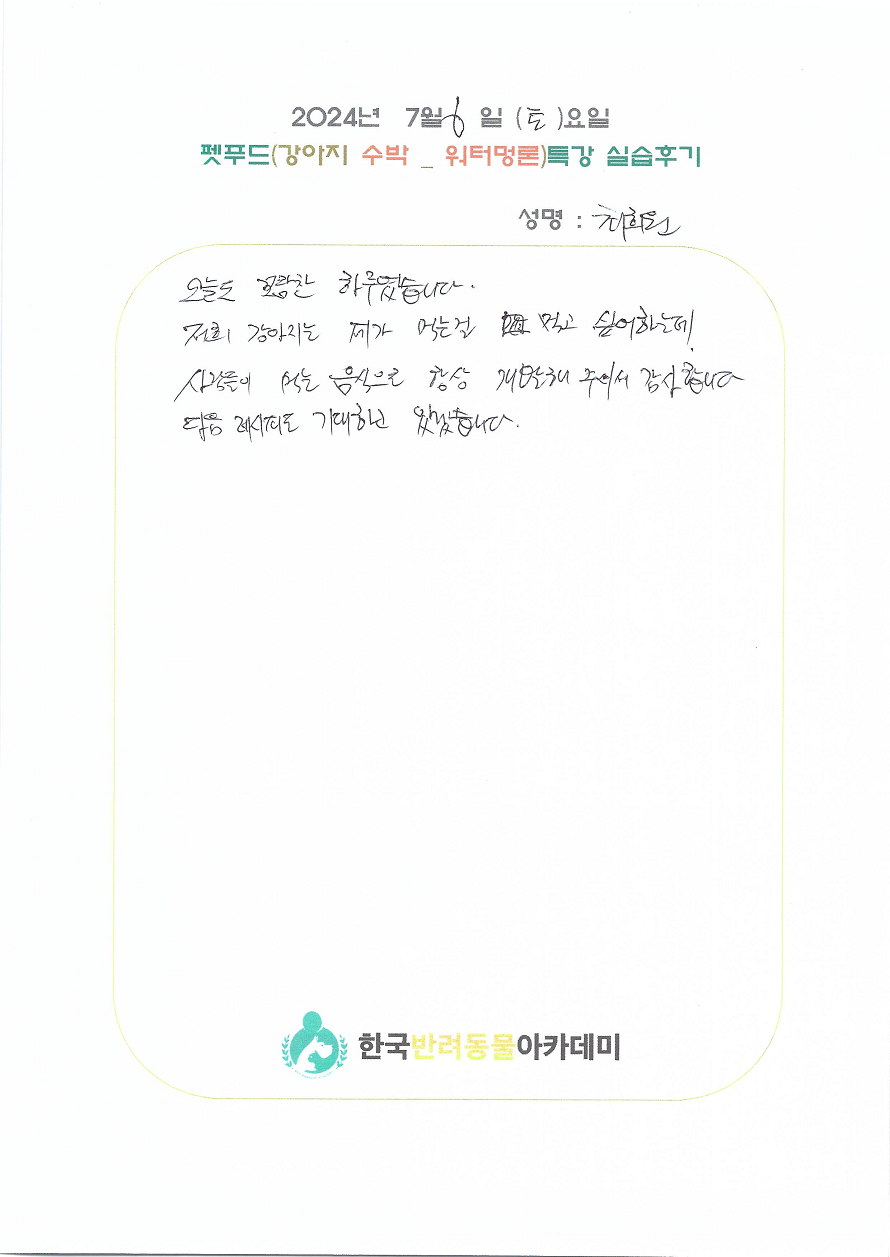 2024년 7월 6 일 (토)요일
펫푸드(강아지 수박 _ 워터멍론)특강 실습후기
성명 : 최희원
오늘도 보람찬 하루였습니다.
저희 강아지는 제가 먹는걸 먹고 싶어하는데,
사람들이 먹는 음식으로 항상 개발해 주셔서 감사합니다
다음 레시피도 기대하고 있겠습니다.
한국반려동물아카데미